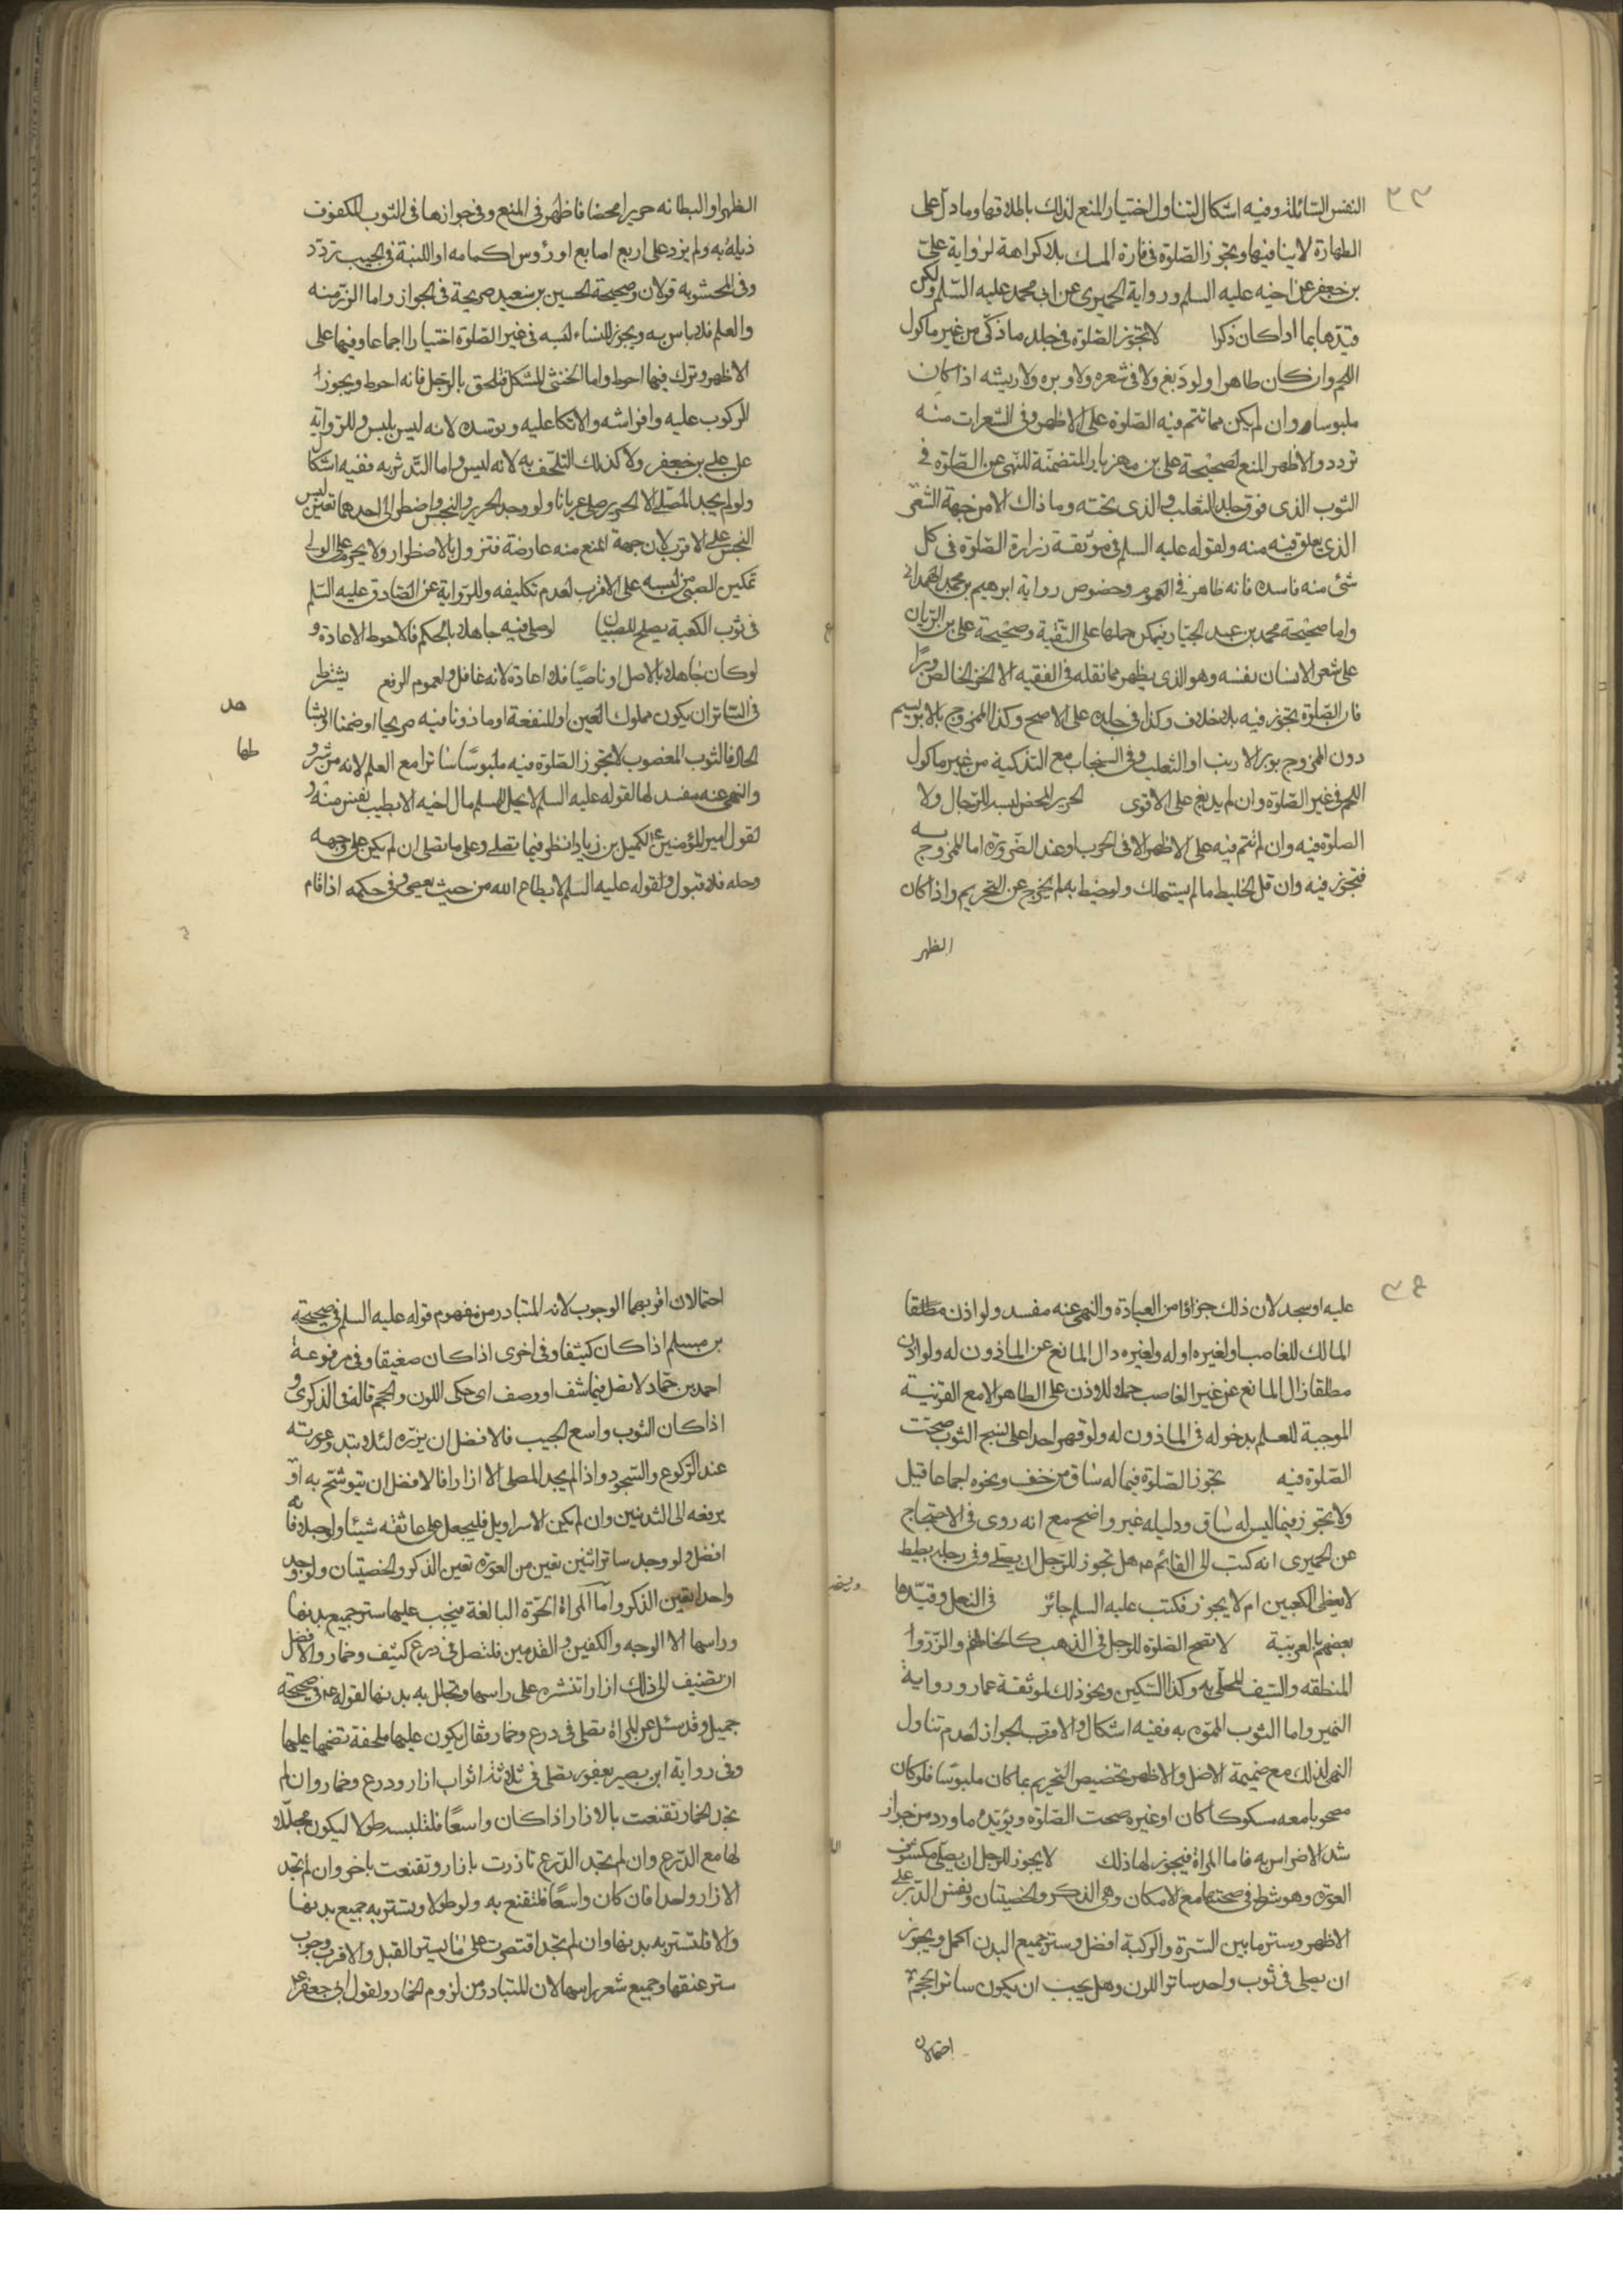 ٣٣
النفس السائلة وفيه اشكال لتناول اختيار المنع لذلك باطلاقها وما دل على
الطهارة لا ينافيها ويجوز الصلوة في فارة المسك بلا كراهة لرواية علي
بن جعفر عن اخيه عليه السلم ورواية الحميري عن ابي محمد عليه السلم ولكن
قيدها بما اذا كان ذكيا لا تجوز الصلوة في جلد ما ذكى من غير ماكول
اللحم وان كان طاهرا ولو دبغ ولا في شعره ولا وبره ولا ريشه اذا كان
ملبوسا وان لم يكن مما تتم فيه الصلوة على الاظهر وفي الشعرات منه
تردد والاظهر المنع لصحيحة علي بن مهزيار المتضمنة للنهي عن الصلوة في
الثوب الذي فوق جلد الثعلب والذي تحته وما ذاك الا من جهة الشعر
الذي يعلق فيه منه ولقوله عليه السلم في موثقة زرارة الصلوة في كل
شئ منه فاسدة فانه ظاهر في العموم وخصوص رواية ابرهيم بن محمد الهمداني
واما صحيحة محمد بن عبد الجبار يمكن حملها على التقية وصحيحة علي بن الريان
على شعر الانسان نفسه وهو الذي يظهر مما نقله في الفقيه الا الخز الخالص وبرا
فان الصلوة تجوز فيه بلا خلاف وكذا في جلده على الاصح وكذا الممزوج بالابريسم
دون الممزوج بوبر الارنب او الثعلب وفي السنجاب مع التذكية من غير ماكول
اللحم في غير الصلوة وان لم يدبغ على الاقوى الحرير المحض لبسه للرجال ولا
الصلوة فيه وان لم تتم فيه على الاظهر الا في الحرب او عند الضرورة اما الممزوج به
فتجوز فيه وان قل الخليط ما لم يستهلك ولو خيط به لم يخرج عن التحريم واذا كان
الظهر
الظهر او البطانه حريرا محضا فاظهر في المنع وفي جوازها في الثوب المكفوف
ذيله به ولم يزد على اربع اصابع او رؤس اكمامه او اللبنة في الجيب تردد
وفي المحشو به قولان وصحيحة الحسين بن سعيد صريحة في الجواز واما الزر منه
والعلم فلا باس به ويجوز للنساء لبسه في غير الصلوة اختيارا اجماعا وفيها على
الاظهر وترك فيها احوط واما الخنثى المشكل فتلحق بالرجل فانه احوط ويجوز
الركوب عليه وافراشه والاتكا عليه وتوسده لانه ليس بلبس وللرواية
عن علي بن جعفر ولا كذلك التلحف به لانه لبس واما التدثر به ففيه اشكال
ولو لم يجد المصلي الا الحرير صلى عريانا ولو وجد الحرير والنجس واضطر الى احدهما تعين لبس
النجس على الاقرب لان جهة المنع منه عارضة فتزول بالاضطرار ولا يحرم على الولي
تمكين الصبي من لبسه على الاقرب لعدم تكليفه وللرواية عن الصادق عليه السلم
في ثوب الكعبة يصلح للصبيان لو صلى فيه جاهلا بالحكم فالاحوط الاعادة و
لو كان جاهلا بالاصل او ناسيا فلا اعادة لانه غافل ولعموم الرفع يشترط
في الساتر ان يكون مملوك العين او المنفعة او ماذونا فيه صريحا او ضمنا او بشاهد
الحال فالثوب المغصوب لا تجوز الصلوة فيه ملبوسا ساترا مع العلم لانه من شرطها
والنهي عنه مفسد لها لقوله عليه السلم لا يحل لمسلم مال اخيه الا بطيب نفس منه و
لقول امير المؤمنين ع لكميل بن زياد انظر فيما تصلي وعلى ما تصلي ان لم يكن على وجهه
وحله فلا قبول ولقوله عليه السلم لا يطاع الله من حيث يعصى وفي حكمه اذا قام
٣٤
عليه او سجد لان ذلك جزؤا من العبادة والنهي عنه مفسد ولو اذن مطلقا
المالك للغاصب او لغيره او له ولغيره دال المانع عن الماذون له ولو اذن
مطلقا زال المانع عن غير الغاصب حملا للاذن على الظاهر الا مع القرينة
الموجبة للعلم بدخوله في الماذون له ولو قهر احدا على نسج الثوب صحت
الصلوة فيه تجوز الصلوة فيما له ساق من خف ونحوه اجماعا قيل
ولا تجوز فيما ليس له ساق ودليله غير واضح مع انه روى في الاحتجاج
عن الحميري انه كتب الى القائم ع هل تجوز للرجل ان يصلي وفي رجليه بطيط
لا يغطي الكعبين ام لا يجوز فكتب عليه السلم جائز في النعل وقيدها
بعضهم بالعربية لا تصح الصلوة للرجل في الذهب كالخاتم والزر و
المنطقه والسيف المحلى به وكذا السكين ونحو ذلك لموثقة عمار ورواية
النميري واما الثوب المموه به ففيه اشكال والاقرب الجواز لعدم تناول
النهي لذلك مع ضميمة الاصل والاظهر تخصيص التحريم بما كان ملبوسا فلو كان
مصحوبا معه مسكوكا كان او غيره صحت الصلوة ويؤيده ما ورد من جواز
شد الاضراس به فاما المراة فيجوز لها ذلك لا يجوز للرجل ان يصلي مكشوف
العورة وهو شرط في صحتها مع الامكان وهي الذكر والخصيتان ونفس الدبر على
الاظهر وستر ما بين السرة والركبة افضل وستر جميع البدن اكمل ويجوز
ان يصلي في ثوب واحد ساترا للون وهل يجب ان يكون ساترا للحجم
احتمالان
احتمالان اقربهما الوجوب لانه المتبادر من مفهوم قوله عليه السلم في صحيحة
بن مسلم اذا كان كثيفا وفي اخرى اذا كان صفيقا وفي مرفوعة
احمد بن حماد لا تصل فيما شف او وصف اي حكى اللون والحجم قاله في الذكرى و
اذا كان الثوب واسع الجيب فالافضل ان يزره لئلا تبدو عورته
عند الركوع والسجود واذا لم يجد المصلي الا ازارا فالافضل ان يتوشح به او
يرفعه الى الثديين وان لم يكن الا سراويل فليجعل على عاتقه شيئا ولو حبلا فانه
افضل ولو وجد ساترا ثنين تعين من العورة تعين الذكر والخصيتان ولو وجد
واحدا تعين الذكر واما المراة الحرة البالغة فيجب عليها ستر جميع بدنها
وراسها الا الوجه والكفين والقدمين فلتصل في درع كثيف وخمار والافضل
ان تضيف الى ذلك ازارا تنشره على راسها وتجلل به بدنها لقوله ع في صحيحة
جميل وقد سئل عن المراة تصلي في درع وخمار فقال يكون عليها ملحفة تضمها عليها
وفي رواية ابن ابي يعفور تصلي في ثلاثة اثواب ازار ودرع وخمار وان لم
تجد الخمار تقنعت بالازار اذا كان واسعا فلتلبسه طولا ليكون مجللا
لها مع الدرع وان لم تجد الدرع تازرت بازار وتقنعت باخر وان لم تجد
الا ازارا واحدا فان كان واسعا فلتقنع به ولو طولا وتستر به جميع بدنها
والا فلتستر به بدنها وان لم تجد اقتصرت على ما يستر القبل والاقرب وجوب
ستر عنقها وجميع شعر راسها لان المتبادر من لزوم الخمار ولقول ابي جعفر ع